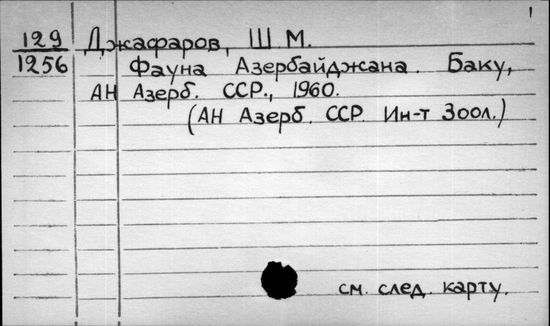 1
129 Джафаров, Ш. М.
1256 Фауна Азербайджана. Баку,
АН Азерб. ССР., 1960.
(АН Азерб. ССР. Ин-т Зоол.)
см. след. карту.